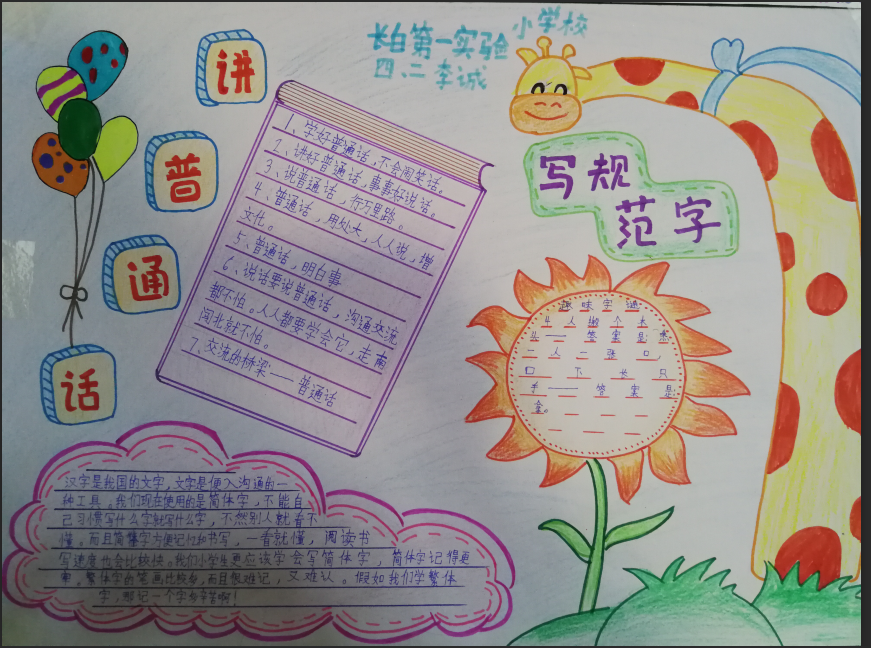 长白第一实验小学校
四、二 李诚
讲
普
通
话
1、学好普通话，不会闹笑话。
2、讲好普通话，事事好说话。
3、说普通话，行万里路。
4、普通话，用处大，人人说，增
文化。
5、普通话，明白事
6、说话要说普通话，沟通交流
都不怕。人人都要学会它，走南
闯北就不怕。
7、交流的桥梁——普通话
写规
范字
趣味字谜
头——答案是:
一人一张口，
口下长只
手——答案是:
拿。
汉字是我国的文字，文字是便入沟通的一
种工具。我们现在使用的是简体字，不能自
己习惯写什么字就写什么字，不然别人就看不
懂。而且简体字方便记忆和书写，一看就懂，阅读书
写速度也会比较快。我们小学生更应该学会写简体字，简体字记得更
牢。繁体字的笔画比较多，而且很难记，又难认。假如我们学繁体
字，那记一个字多辛苦啊！